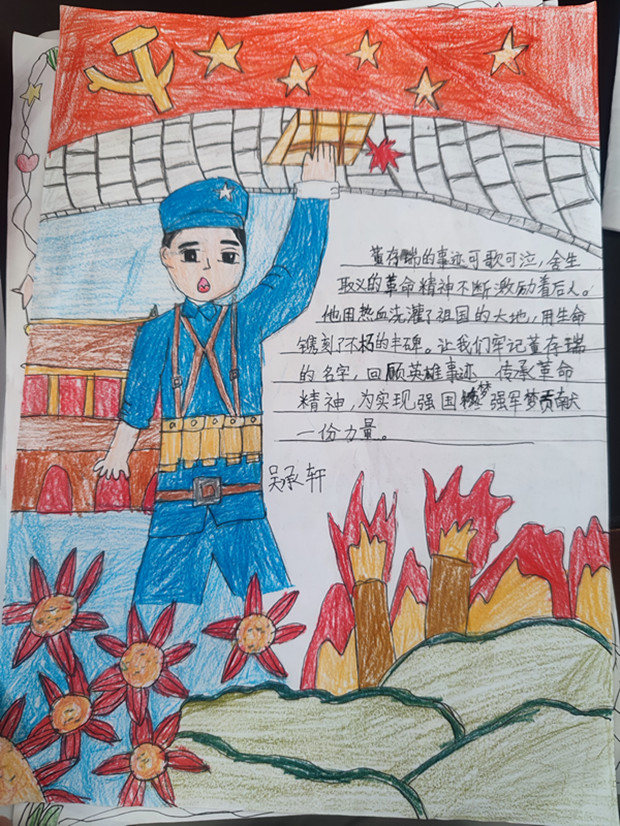 董存瑞的事迹可歌可泣,舍生
取义的革命精神不断激励着后人。
他用热血浇灌了祖国的大地,用生命
镌刻了不朽的丰碑。让我们牢记董存瑞
的名字,回顾英雄事迹 传承革命
精神,为实现强国梦强军梦贡献
一份力量。
吴承轩